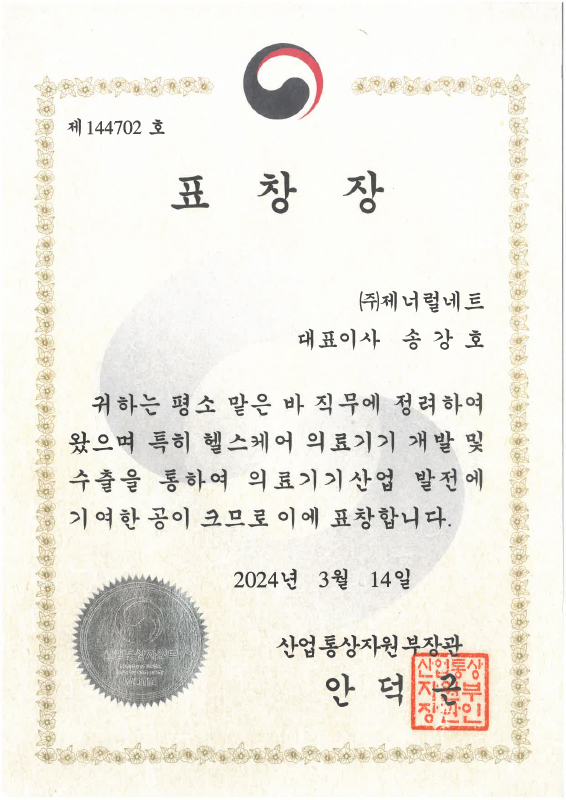 제 144702 호
표 창 장
㈜제너럴네트
대표이사 송 강 호
귀하는 평소 맡은 바 직무에 정려하여
왔으며 특히 헬스케어 의료기기 개발 및
수출을 통하여 의료기기산업 발전에
기여한 공이 크므로 이에 표창합니다.
2024년 3월 14일
산업통상자원부장관
안 덕 근
산업통상
자원부
장관인
산업통상자원부